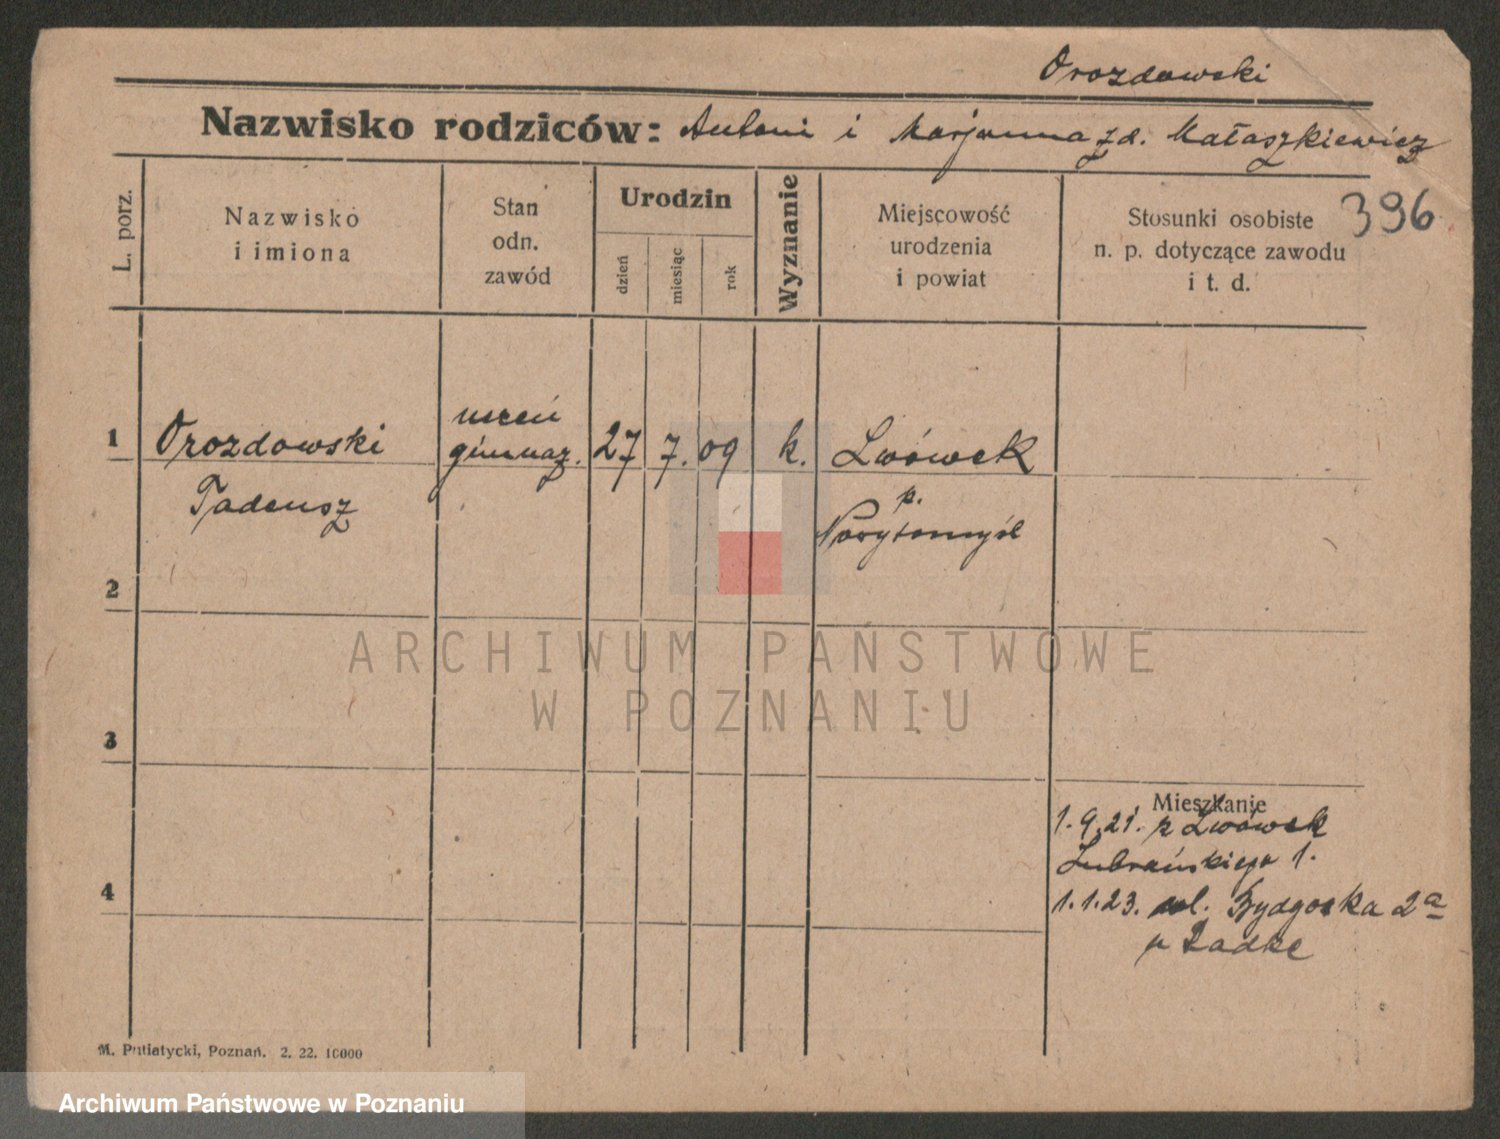 Orozdowski
Nazwisko rodziców: Antoni i Marjanna zd. Małaszkiewicz
396
L. porz.
Nazwisko
i imiona
Stan
odn.
zawód
Urodzin
dzień
miesiąc
rok
Wyznanie
Miejscowość
urodzenia
i powiat
Stosunki osobiste
n. p. dotyczące zawodu
i t. d.
1
Orozdowski
Tadeusz
uczeń
gimnaz.
27 7. 09 k.
Lwówek
p.
Nowytomyśl
2
3
4
Mieszkanie
1.9.21. z Lwówek
Lubrańskiego 1.
1.1.23. ul. Bydgoska 2a
u Radke
M. Putiatycki, Poznań. 2. 22. 10000
ARCHIWUM PAŃSTWOWE
W POZNANIU
Archiwum Państwowe w Poznaniu